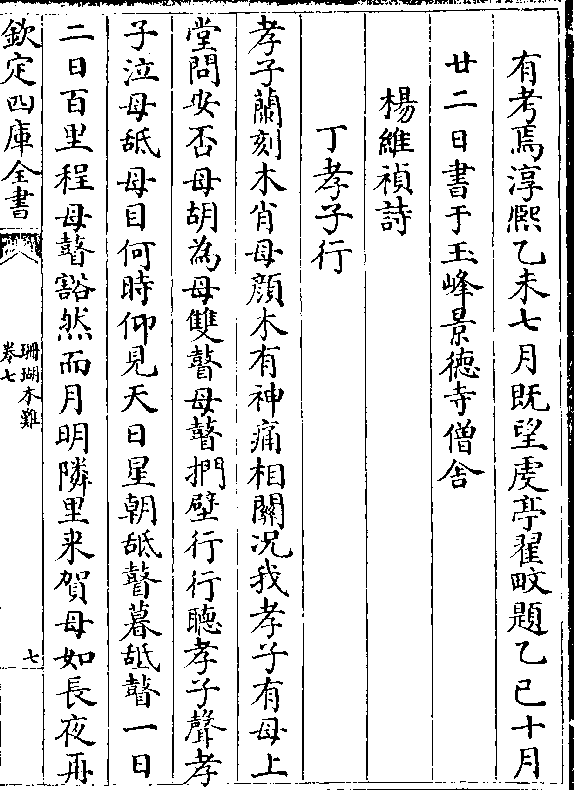 有考焉淳熈乙未七月既望虔亭翟畋題乙巳十月
廿二日書于玉峰景徳寺僧舎
楊維禎詩
丁孝子行
孝子蘭刻木肖母顔木有神痛相關况我孝子有母上
堂問安否母胡為母雙瞽母瞽捫壁行行聽孝子聲孝
子泣母舐母目何時仰見天日星朝舐瞽暮舐瞽一日
二日百里程母瞽豁然而月明隣里来賀母如長夜再
欽定四庫全書
珊瑚木難
卷七
七